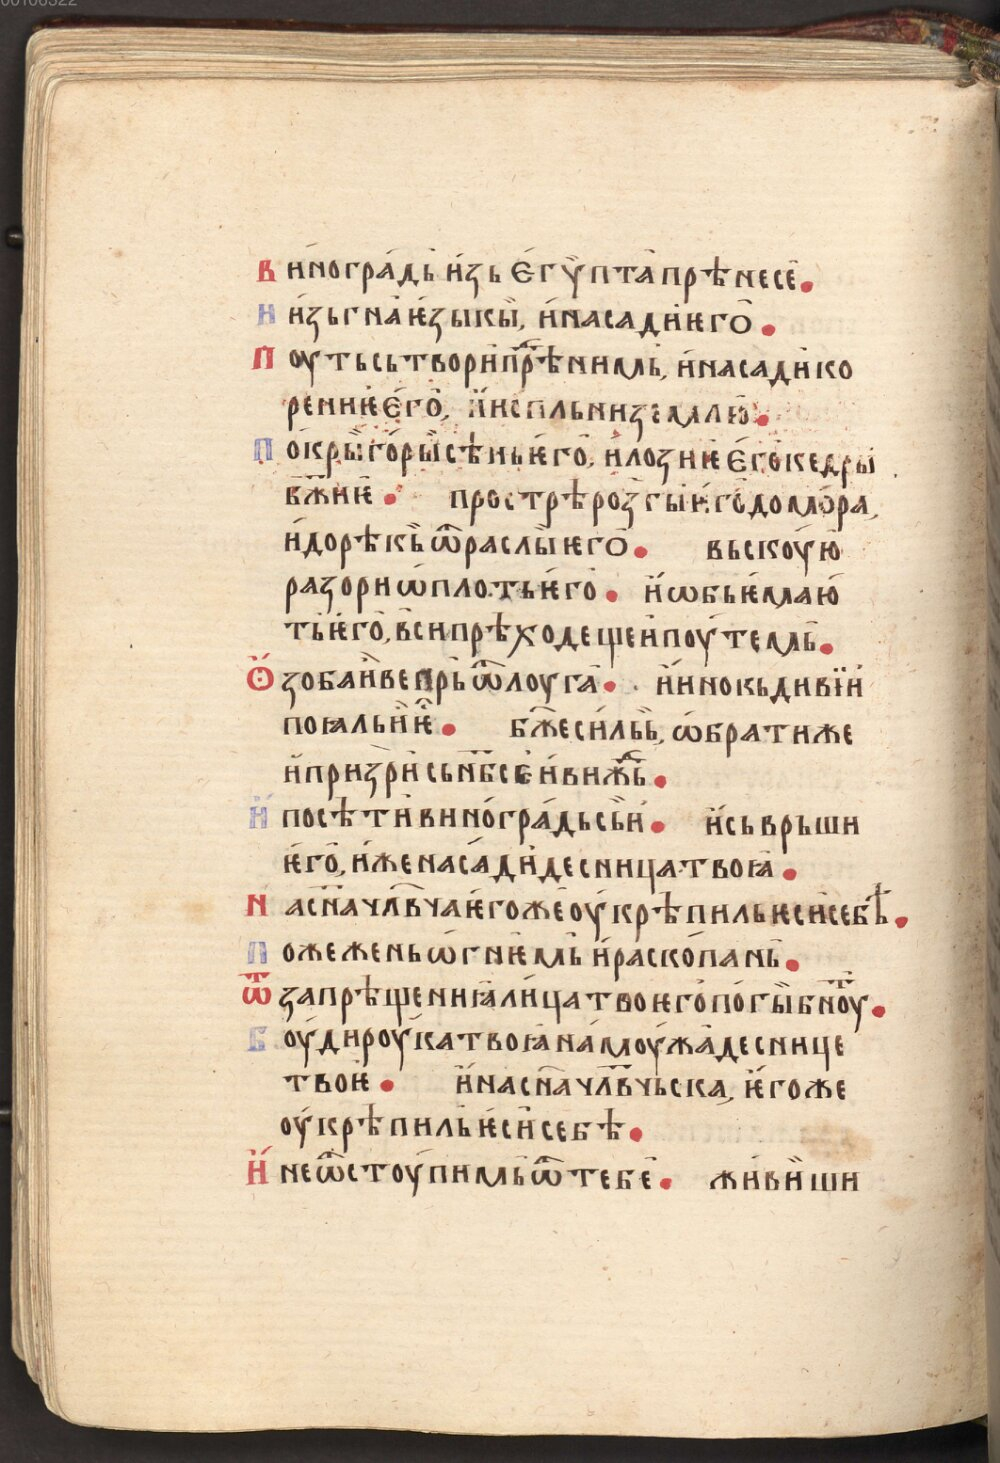 виногрⷶадь и҆зь є҆гѵ̈пта прѣнесе.
и҆ и҆зьгна ѥ҆зыкы̏, и҆ насади ѥго.
поуть сьтвори прⷣѣ нимь, и҆ насади ко
рениѥ е҆го, и҆ испльни землю.
покры̏ го́ры̏ сѣнь ѥ҆го, и҆ лозиѥ е҆го кедры
бж҃иѥ. прострѣ розгы ѥ҆го до мо́ра,
и҆ до рѣкь ѿрасли ѥго. вьскоую
разори ѡ҆плоть ѥ҆го. и҆ ѡбьѥ҆маю
ть ѥ҆го, вси прѣходещеи поутемь.
Ѻ҆зоба и҆ вепрь ѿ лоуга. и҆ инокь дивїи
поꙗль ѥ. бж҃е силь, ѡ҆брати же
и҆ призри сь нб҃се и҆ виждⷣь.
и҆ посѣти виногрⷶадь сьи. и҆ сьврьши
ѥ҆го, и҆же насади десница твоꙗ.
на сн҃а чл҃вча ѥ҆гоже оу҆крѣпиль ѥси себѣ.
пожежень ѡ҆гнѥмь и҆ раскопань.
ѿ запрѣщениꙗ лица твоѥго погыбноуⷮ.
боуди роука твоꙗ на моужа десницe
твоѥ. и҆ на сн҃а чл҃вчьска, ѥ҆гоже
оу҆крѣпиль ѥ҆си себѣ.
и҆ не ѿстоупимь ѿ тебе. живиши